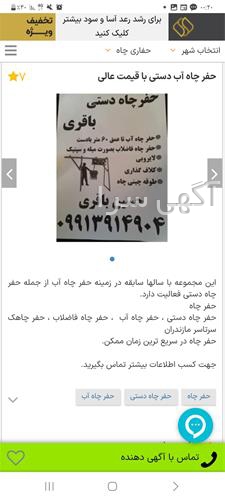 ۰۰:۲۰
٪۴۰
تخفیف
ویژه
برای رشد رعد آسا و سود بیشتر
کلیک کنید
انتخاب شهر
حفاری چاه
حفر چاه آب دستی با قیمت عالی
۷
حفر چاه دستی
باقری
حفر چاه آب تا عمق ۶۰ متر بادست
حفر چاه فاضلاب بصورت میله و سپتیک
لایروبی
کلاف گذاری
طوقه چینی چاه
آگهی سرا
باقری
۰۹۹۱۳۹۱۴۹۰۴
این مجموعه با سالها سابقه در زمینه حفر چاه آب از جمله حفر
چاه دستی فعالیت دارد.
حفر چاه
حفر چاه دستی ، حفر چاه آب ، حفر چاه فاضلاب ، حفر چاهک
سرتاسر مازندران
حفر چاه در سریع ترین زمان ممکن.
جهت کسب اطلاعات بیشتر تماس بگیرید.
حفر چاه
حفر چاه دستی
حفر چاه آب
تماس با آگهی دهنده